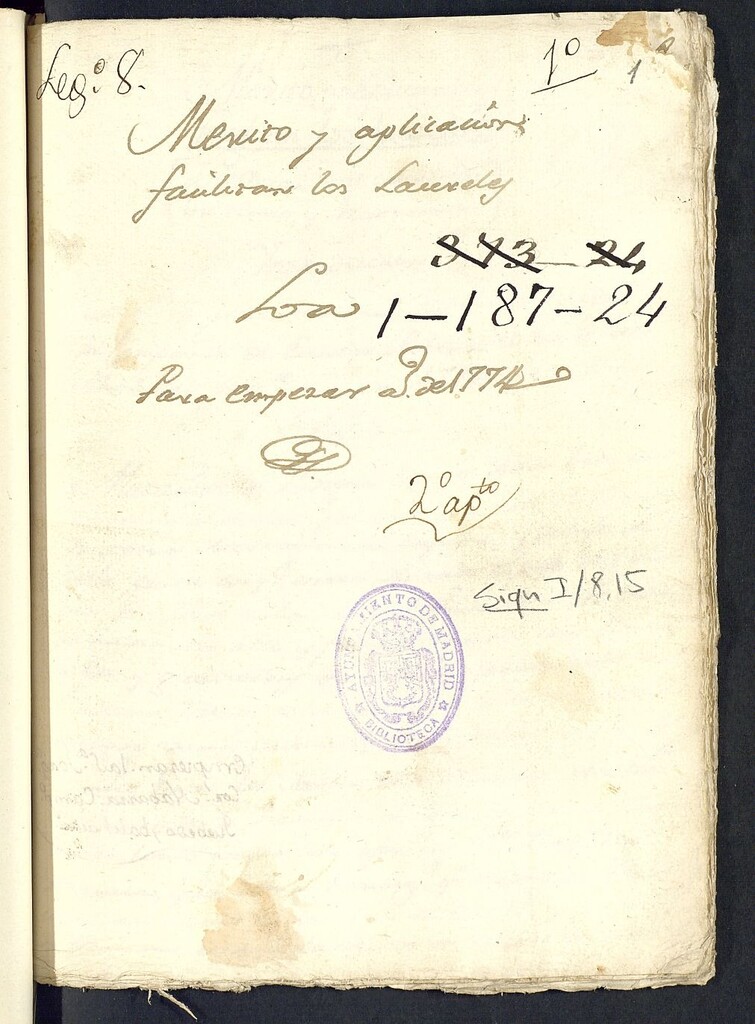 Leg.º 8.
1º
1
Merito y aplicacion
facilitan los Laureles
373-24
Loa 1-187-24
Para empezar a3. de 1774
2º apto
Sign I/8,15
AYUNTAMIENTO DE MADRID
BIBLIOTECA